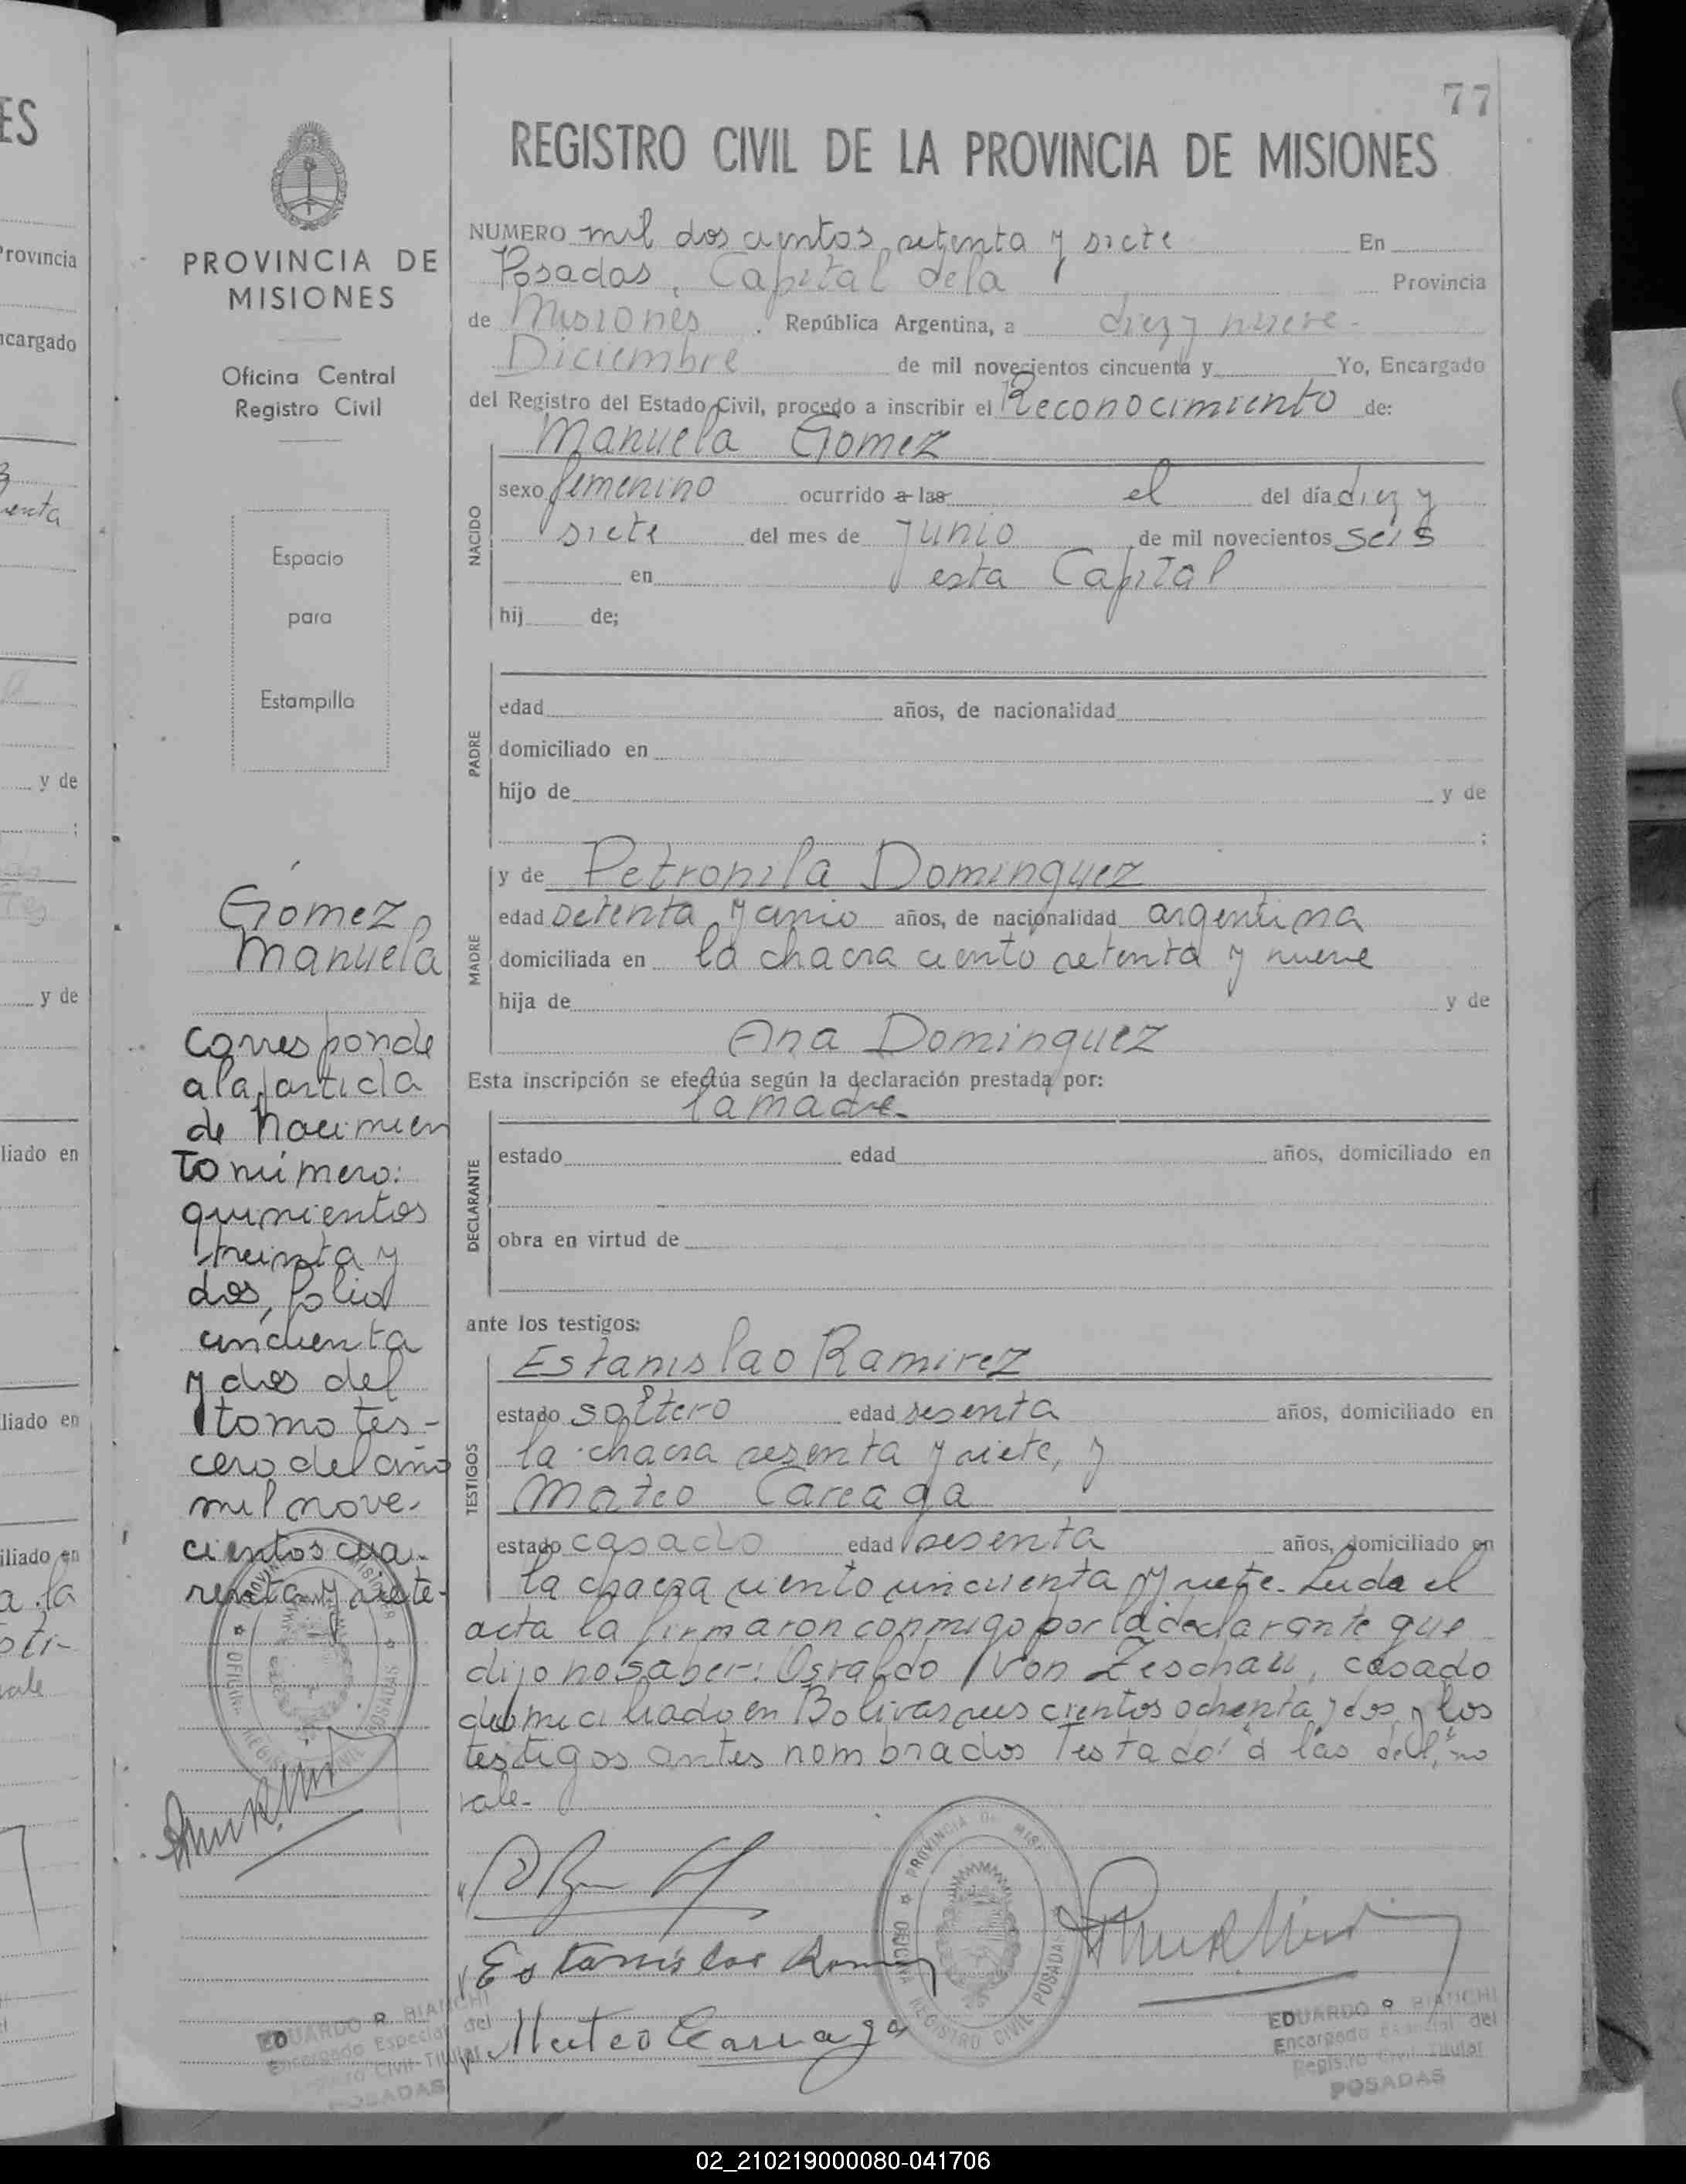 77
REGISTRO CIVIL DE LA PROVINCIA DE MISIONES
PROVINCIA DE
MISIONES
Oficina Central
Registro Civil
Espacio
para
Estampilla
Gomez
Manuela
Corresponde
a la partida
de Nacimien
to número:
quinientos
treinta y
dos, folio
cincuenta
y dos del
tomo ter-
cero del año
mil nove-
cientos cua-
renta y siete-
NUMERO mil doscientos setenta y siete En
Posadas, Capital de la Provincia
de Misiones . República Argentina, a diez y nueve-
Diciembre de mil novecientos cincuenta y Yo, Encargado
del Registro del Estado Civil, procedo a inscribir el Reconocimiento de:
Manuela Gomez
NACIDO
sexo femenino ocurrido a las el del día diez y
siete del mes de junio de mil novecientos seis
en esta Capital
hij de;
PADRE
edad años, de nacionalidad
domiciliado en
hijo de y de
:
MADRE
y de Petronila Dominguez
edad setenta y cinco años, de nacionalidad argentina
domiciliada en la chacra ciento setenta y nueve
hija de y de
Ana Dominguez
Esta inscripción se efectúa según la declaración prestada por:
la madre-
DECLARANTE
estado edad años, domiciliado en
obra en virtud de
ante los testigos:
TESTIGOS
Estanislao Ramirez
estado soltero edad sesenta años, domiciliado en
la chacra sesenta y siete, y
Mateo Careaga
estado casado edad sesenta años, domiciliado en
la chacra ciento cincuenta y siete. Leida el
acta la firmaron conmigo por la declarante que
dijo no saber: Osvaldo Von Zeschau, casado
domiciliado en Bolivar seis cientos ochenta y dos y los
testigos antes nombrados Testado: "a las del", no
vale-
Estanislao
Mateo Careaga
PROVINCIA DE MISIONES
OFICINA REGISTRO CIVIL POSADAS
EDUARDO R. BIANCHI
Encargado Especial del
Registro Civil Titular
POSADAS
EDUARDO R BIANCHI
Encargado Especial del
Registro Civil Titular
POSADAS
02_210219000080-041706